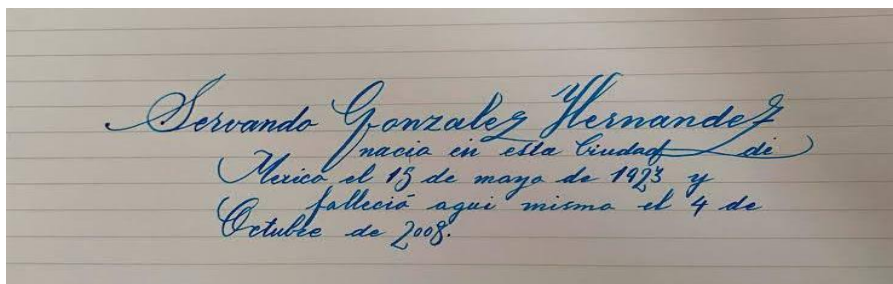 Servando Gonzalez Hernandez
nacio en esta Ciudad de
Mexico el 15 de mayo de 1923 y
falleció aqui mismo el 4 de
Octubre de 2008.